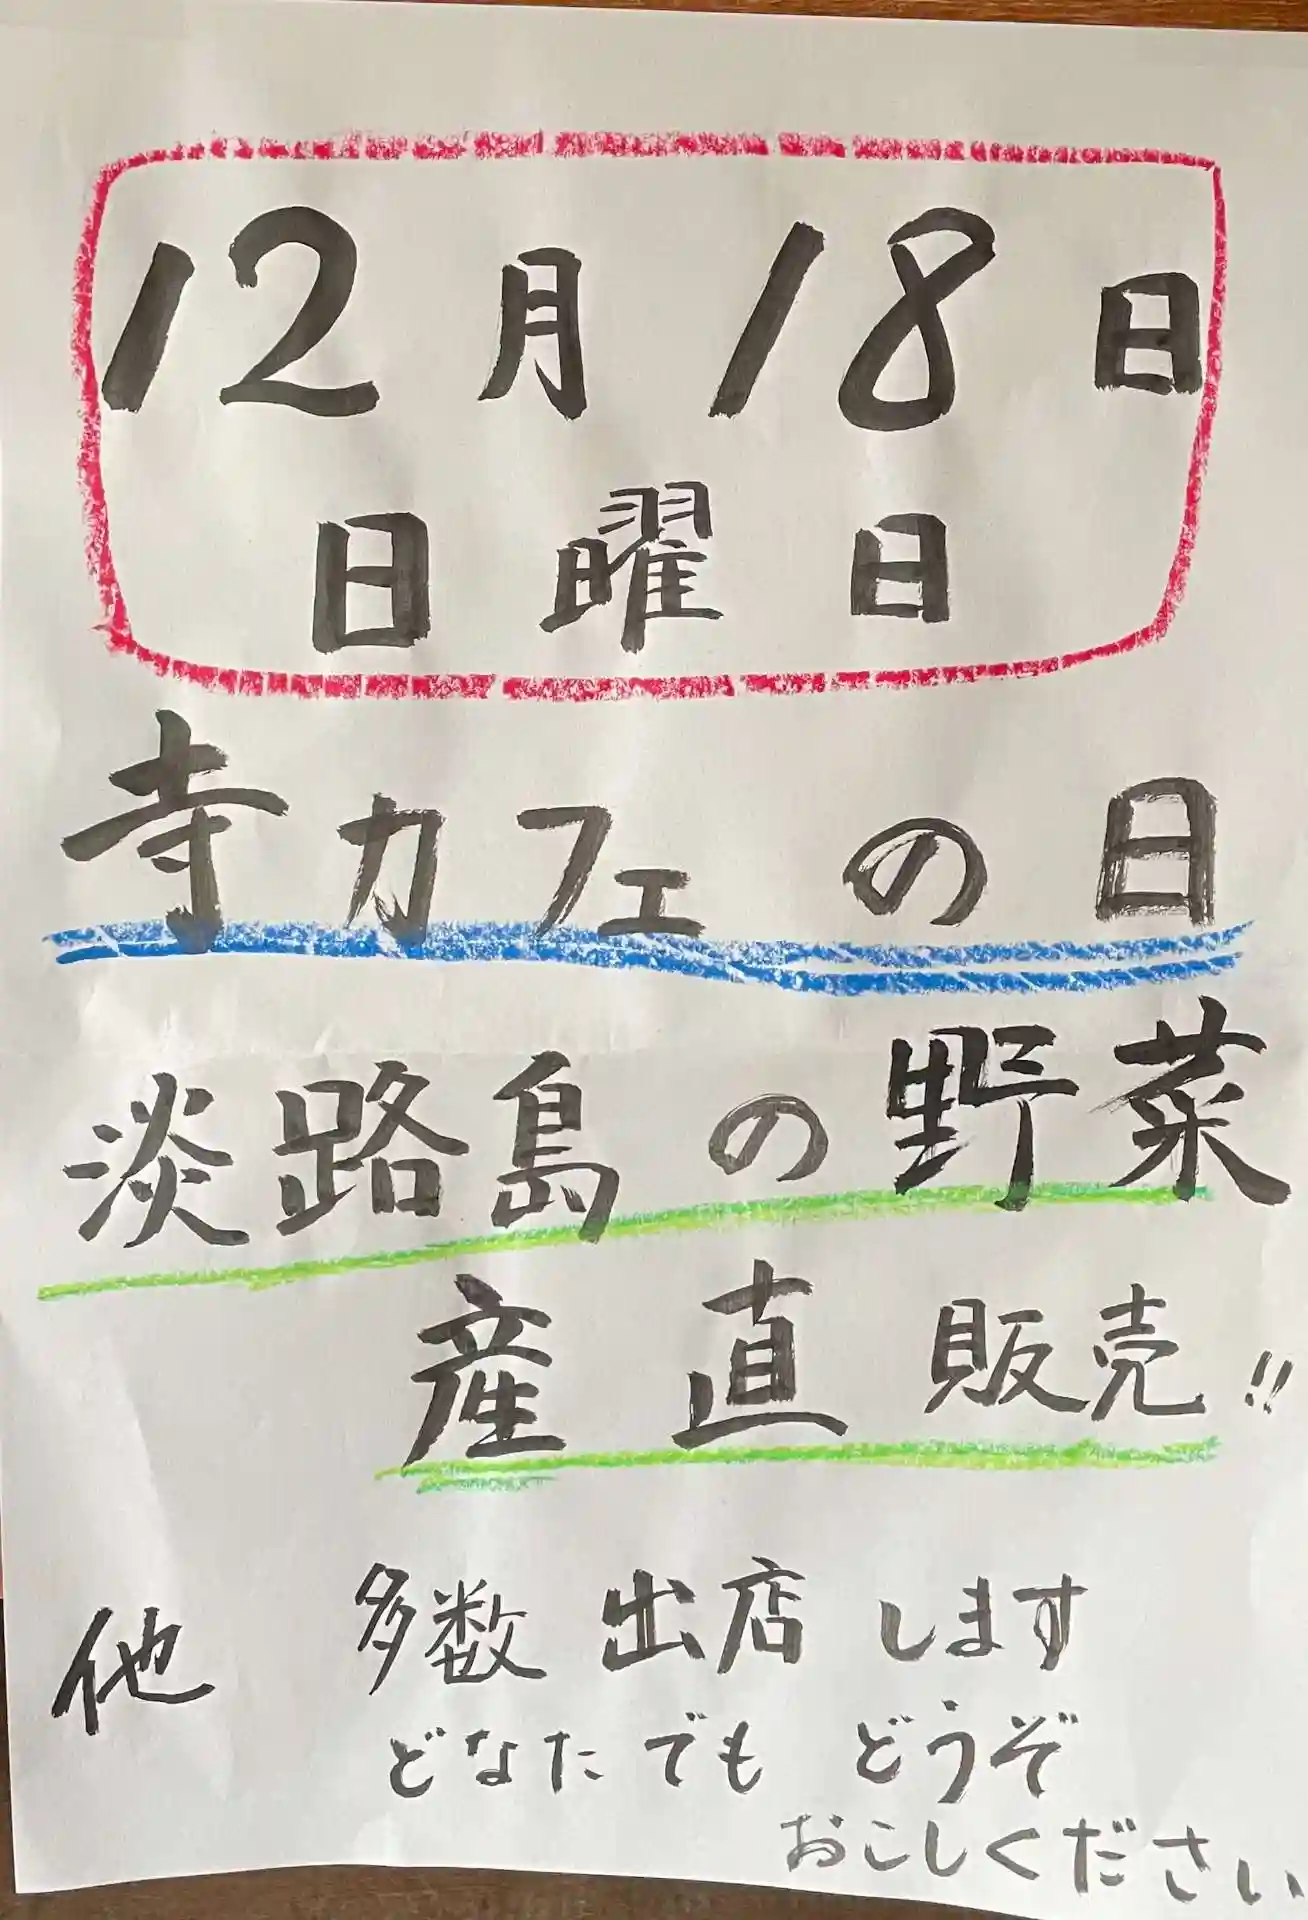 12月18日
日曜日
寺カフェの日
淡路島の野菜
産直販売!!
他 多数出店します
どなたでも どうぞ
おこしください